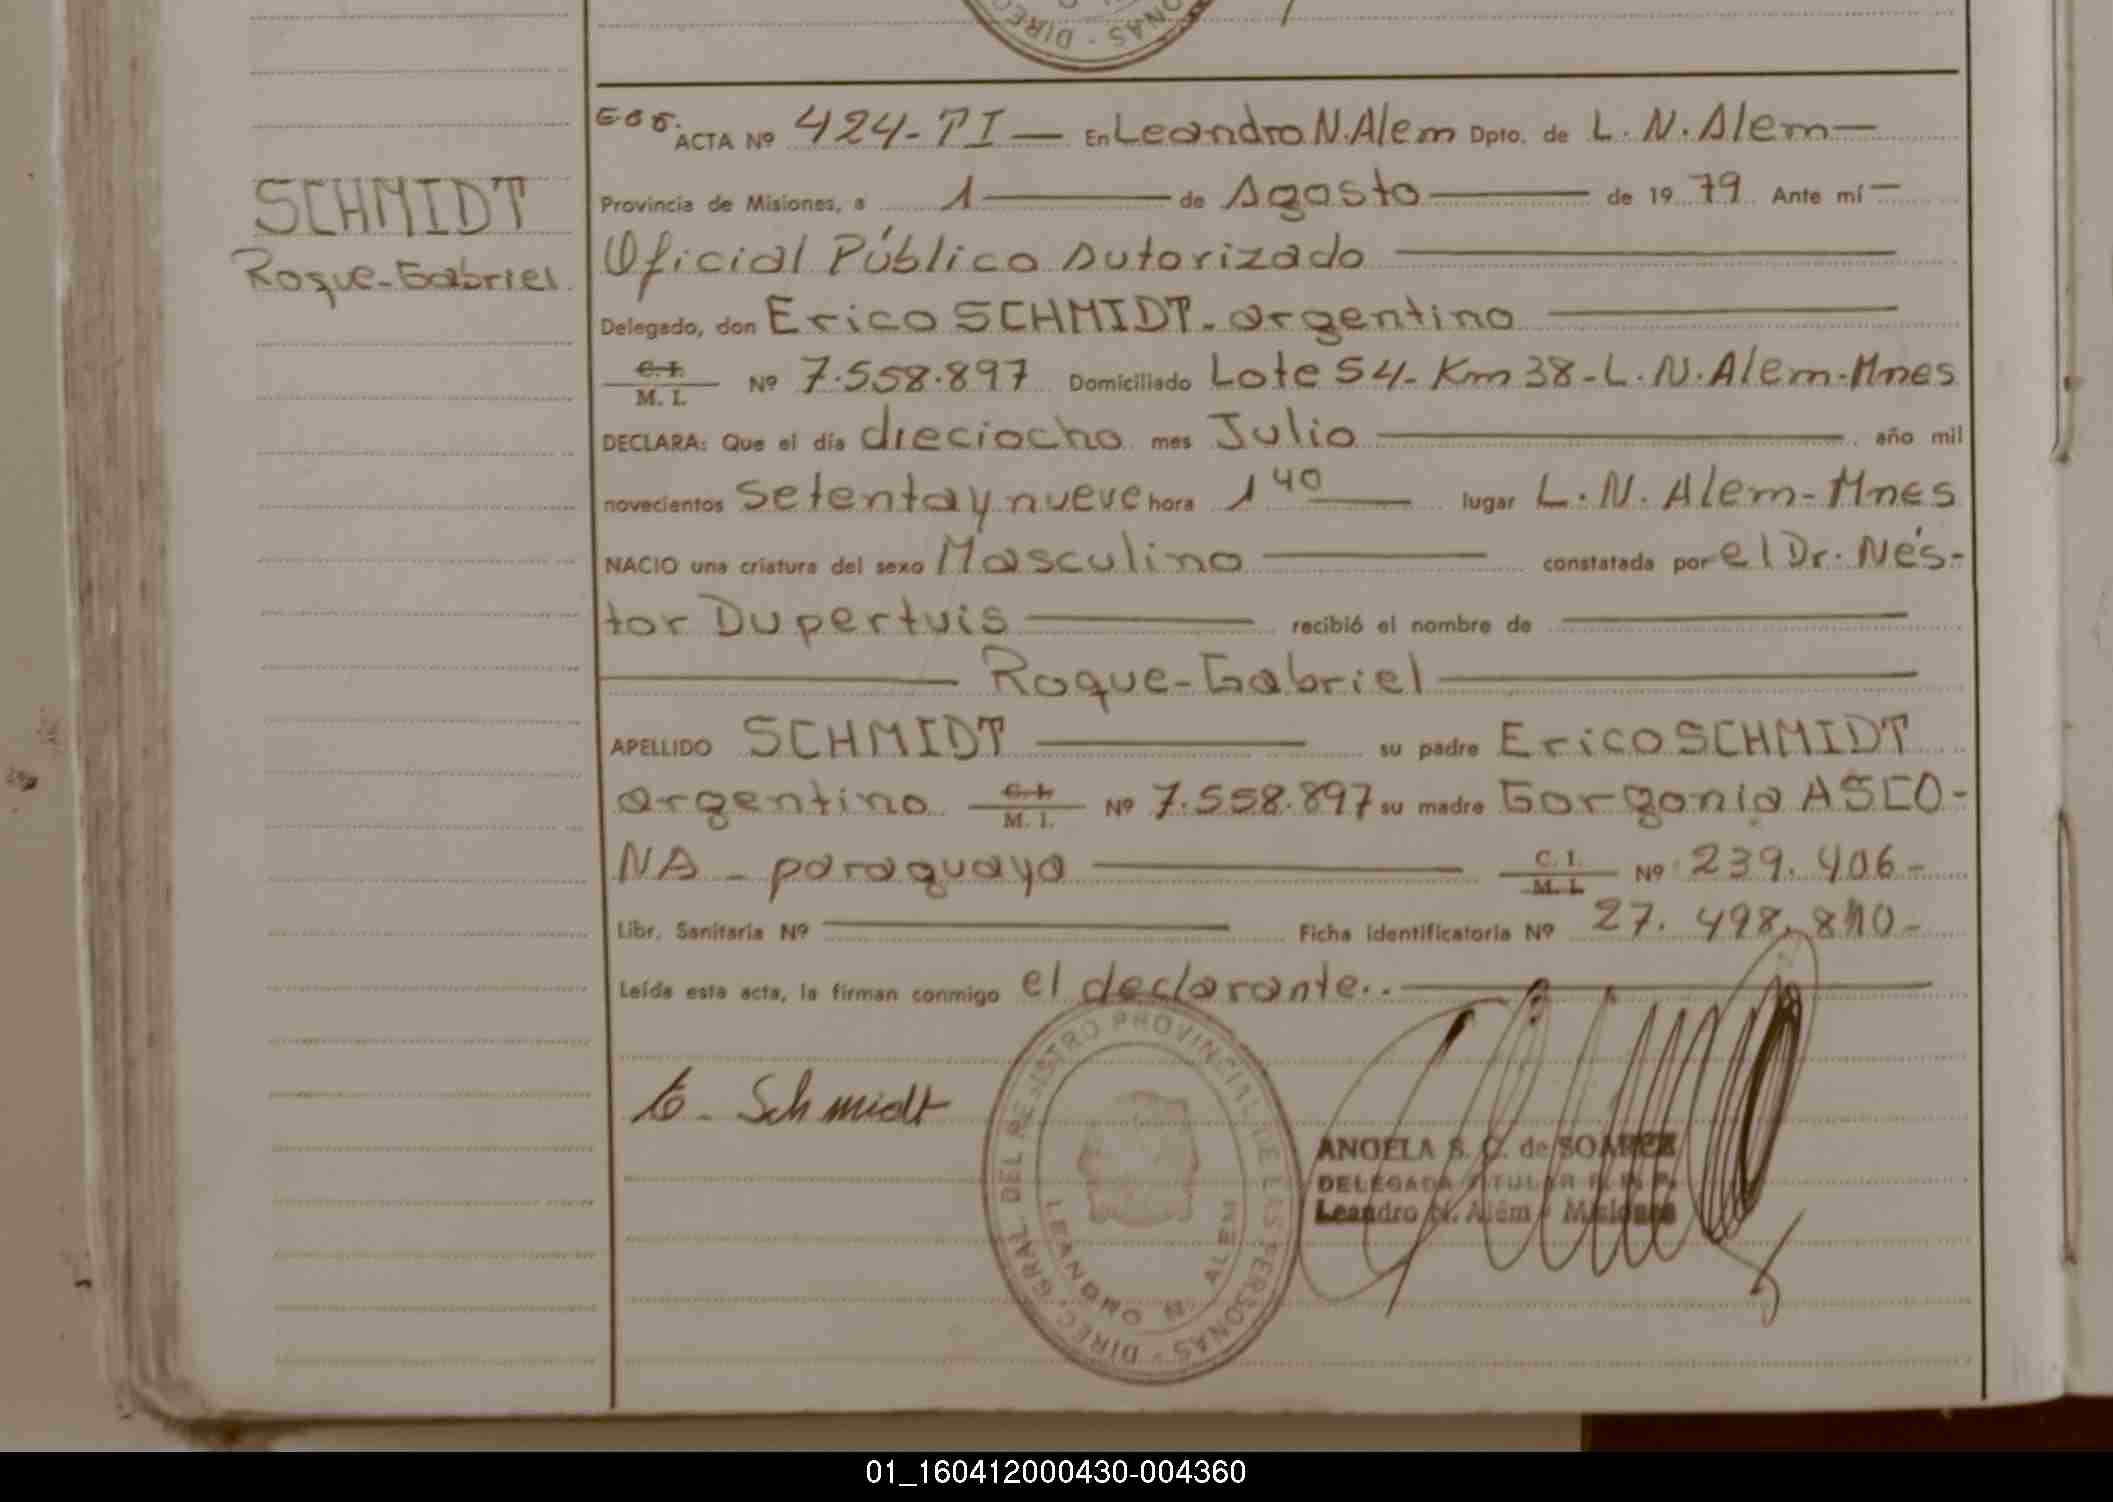 DIREC - SONAS
ACTA Nº 424-PI — En Leandro N. Alem Dpto. de L. N. Alem —
Provincia de Misiones, a 1 — de Agosto — de 1979. Ante mí —
SCHMIDT
Roque-Gabriel
Oficial Público Autorizado —
Delegado, don Erico SCHMIDT. argentino —
C.I. M. I. Nº 7.558.897 Domiciliado Lote 54-Km 38-L.N.Alem-Mnes
DECLARA: Que el día dieciocho mes Julio — año mil
novecientos setenta y nueve hora 1 40 — lugar L.N. Alem-Mnes
NACIO una criatura del sexo Masculino — constatada por el Dr. Nés-
tor Dupertuis — recibió el nombre de —
— Roque-Gabriel —
APELLIDO SCHMIDT — su padre Erico SCHMIDT
argentino C.I. M. I. Nº 7.558.897 su madre Gorgonia ASCO-
NA - paraguaya — C. I. M. I. Nº 239.406-
Libr. Sanitaria Nº — Ficha identificatoria Nº 27.498.810-
Leída esta acta, la firman conmigo el declarante.. —
E. Schmidt
DIREC. GRAL DEL REGISTRO PROVINCIAL DE LAS PERSONAS -
LEANDRO N. ALEM
ANGELA S. C. de SOAREZ
DELEGADA TITULAR R. P. P.
Leandro N. Além - Misiones
01_160412000430-004360